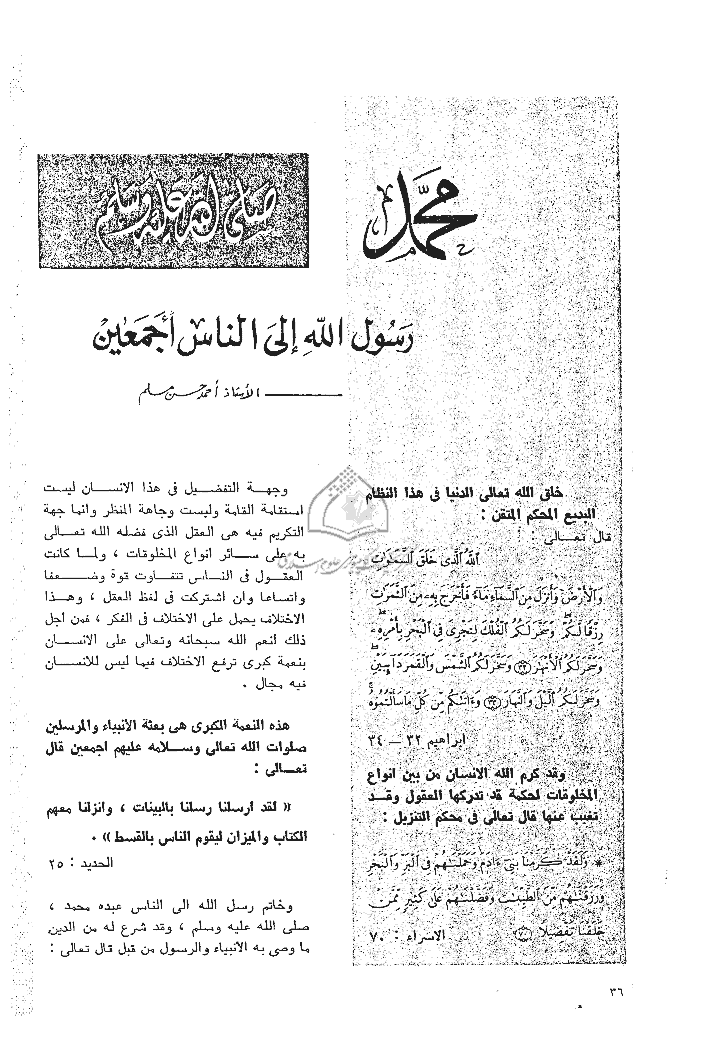 محمد
صلى الله عليه وسلم
رَسُول اللهِ إلىَ الناس أجمَعين
الأستاذ أحمد حسن مسلم
خلق الله تعالى الدنيا فى هذا النظام
البديع المحكم المتقن :
قال تعـــالى : :
ٱللَّهُ ٱلَّذِى خَلَقَ ٱلسَّمَٰوَٰتِ
وَٱلْأَرْضَ وَأَنزَلَ مِنَ ٱلسَّمَآءِ مَآءً فَأَخْرَجَ بِهِۦ مِنَ ٱلثَّمَرَٰتِ
رِزْقًا لَّكُمْ وَسَخَّرَ لَكُمُ ٱلْفُلْكَ لِتَجْرِىَ فِى ٱلْبَحْرِ بِأَمْرِهِۦ
وَسَخَّرَ لَكُمُ ٱلْأَنْهَٰرَ ﴿٣٢﴾ وَسَخَّرَ لَكُمُ ٱلشَّمْسَ وَٱلْقَمَرَ دَآئِبَيْنِ
وَسَخَّرَ لَكُمُ ٱلَّيْلَ وَٱلنَّهَارَ ﴿٣٣﴾ وَءَاتَىٰكُم مِّن كُلِّ مَا سَأَلْتُمُوهُ
ابراهيم ٣٢ — ٣٤
وقد كرم الله الانسان من بين انواع
المخلوقات لحكمة قد تدركها العقول وقــد
تغيب عنها قال تعالى فى محكم التنزيل :
* وَلَقَدْ كَرَّمْنَا بَنِىٓ ءَادَمَ وَحَمَلْنَٰهُمْ فِى ٱلْبَرِّ وَٱلْبَحْرِ
وَرَزَقْنَٰهُم مِّنَ ٱلطَّيِّبَٰتِ وَفَضَّلْنَٰهُمْ عَلَىٰ كَثِيرٍ مِّمَّنْ
خَلَقْنَا تَفْضِيلًا ﴿٧٠﴾ الاسراء : ٧٠
وجهــة التفضــيل فى هذا الانســان ليست
استقامة القامة وليست وجاهة المنظر وانما جهة
التكريم فيه هى العقل الذى فضله الله تعــالى
به على ســائر انواع المخلوقات ، ولمــا كانت
العقــول فى النــاس تتفــاوت قوة وضــعفا
واتساعا وان اشتركت فى لفظ العقل ، وهــذا
الاختلاف يحمل على الاختلاف فى الفكر ، فمن اجل
ذلك انعم الله سبحانه وتعالى على الانســان
بنعمة كبرى ترفع الاختلاف فيما ليس للانســان
فيه مجال .
هذه النعمة الكبرى هى بعثة الأنبياء والمرسلين
صلوات الله تعالى وســلامه عليهم اجمعين قال
تعــالى :
« لقد ارسلنا رسلنا بالبينات ، وانزلنا معهم
الكتاب والميزان ليقوم الناس بالقسط » .
الحديد : ٢٥
وخاتم رسل الله الى الناس عبده محمد ،
صلى الله عليه وسلم ، وقد شرع له من الدين
ما وصى به الأنبياء والرسول من قبل قال تعالى :
٣٦